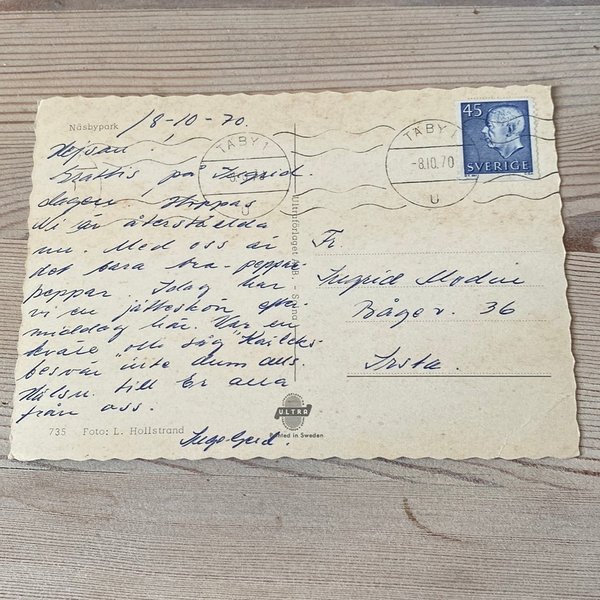 Näsbypark
/8-10-70.
Hejsan!
Grattis på Ingrid
dagen Hoppas
Ni är återställda
nu. Med oss är
det bara bra - peppar
peppar. Idag har
vi en jätteskön efter
middag här. Var en
kväll o såg "Kärleks
besvär" inte dum alls.
Hälsn. till Er alla
från oss.
Ingegerd.
735 Foto: L. Hollstrand
Ultraförlaget A.-B. - Solna
ULTRA
Printed in Sweden
TÄBY 1
U
TÄBY 1
-8.10.70
U
45
SVERIGE
Fr.
Ingrid Modin
Båge v. 36
Irsta.